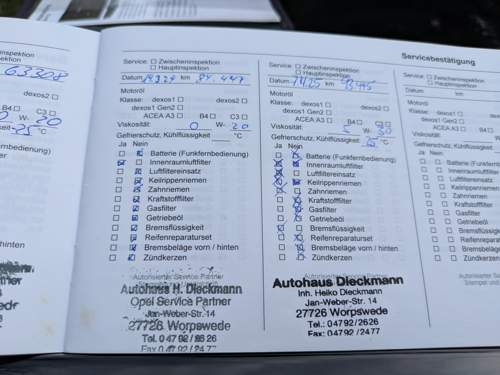 Servicebestätigung
nspektion
pektion
63308
dexos2
B4 C3
W- 20
keit -25 °C
enbedienung)
r
n
hinten
Service: Zwischeninspektion
Hauptinspektion
Datum km 84.447
Motoröl
Klasse: dexos1 dexos2
dexos1 Gen2
ACEA A3 B4 C3
Viskosität: 0 W- 20
Gefrierschutz, Kühlflüssigkeit °C
Ja Nein
Batterie (Funkfernbedienung)
Innenraumluftfilter
Luftfiltereinsatz
Keilrippenriemen
Zahnriemen
Kraftstofffilter
Gasfilter
Getriebeöl
Bremsflüssigkeit
Reifenreparaturset
Bremsbeläge vorn / hinten
Zündkerzen
Autorisierter Service Partner
Autohaus H. Dieckmann
Opel Service Partner
Jan-Weber-Str. 14
27726 Worpswede
Tel. 04792/2626
Fax 04792/2477
Service: Zwischeninspektion
Hauptinspektion
Datum km
Motoröl
Klasse: dexos1 dexos2
dexos1 Gen2
ACEA A3 B4 C3
Viskosität: 5 W- 30
Gefrierschutz, Kühlflüssigkeit °C
Ja Nein
Batterie (Funkfernbedienung)
Innenraumluftfilter
Luftfiltereinsatz
Keilrippenriemen
Zahnriemen
Kraftstofffilter
Gasfilter
Getriebeöl
Bremsflüssigkeit
Reifenreparaturset
Bremsbeläge vorn / hinten
Zündkerzen
Autohaus Dieckmann
Inh. Heiko Dieckmann
Jan-Weber-Str. 14
27726 Worpswede
Tel.: 04792/2626
Fax: 04792/2477
Service: Zwischeninspektion
Hauptinspektion
Datum km
Motoröl
Klasse: dexos1
dexos1 Gen2
ACEA A3
Viskosität:
Gefrierschutz, Kühlflüssigkeit
Ja Nein
Batterie (Funkfernbedi
Innenraumluftfilter
Luftfiltereinsatz
Keilrippenriemen
Zahnriemen
Kraftstofffilter
Gasfilter
Getriebeöl
Bremsflüssigkeit
Reifenreparaturset
Bremsbeläge
Zündkerzen
Autorisierter
Stempel und